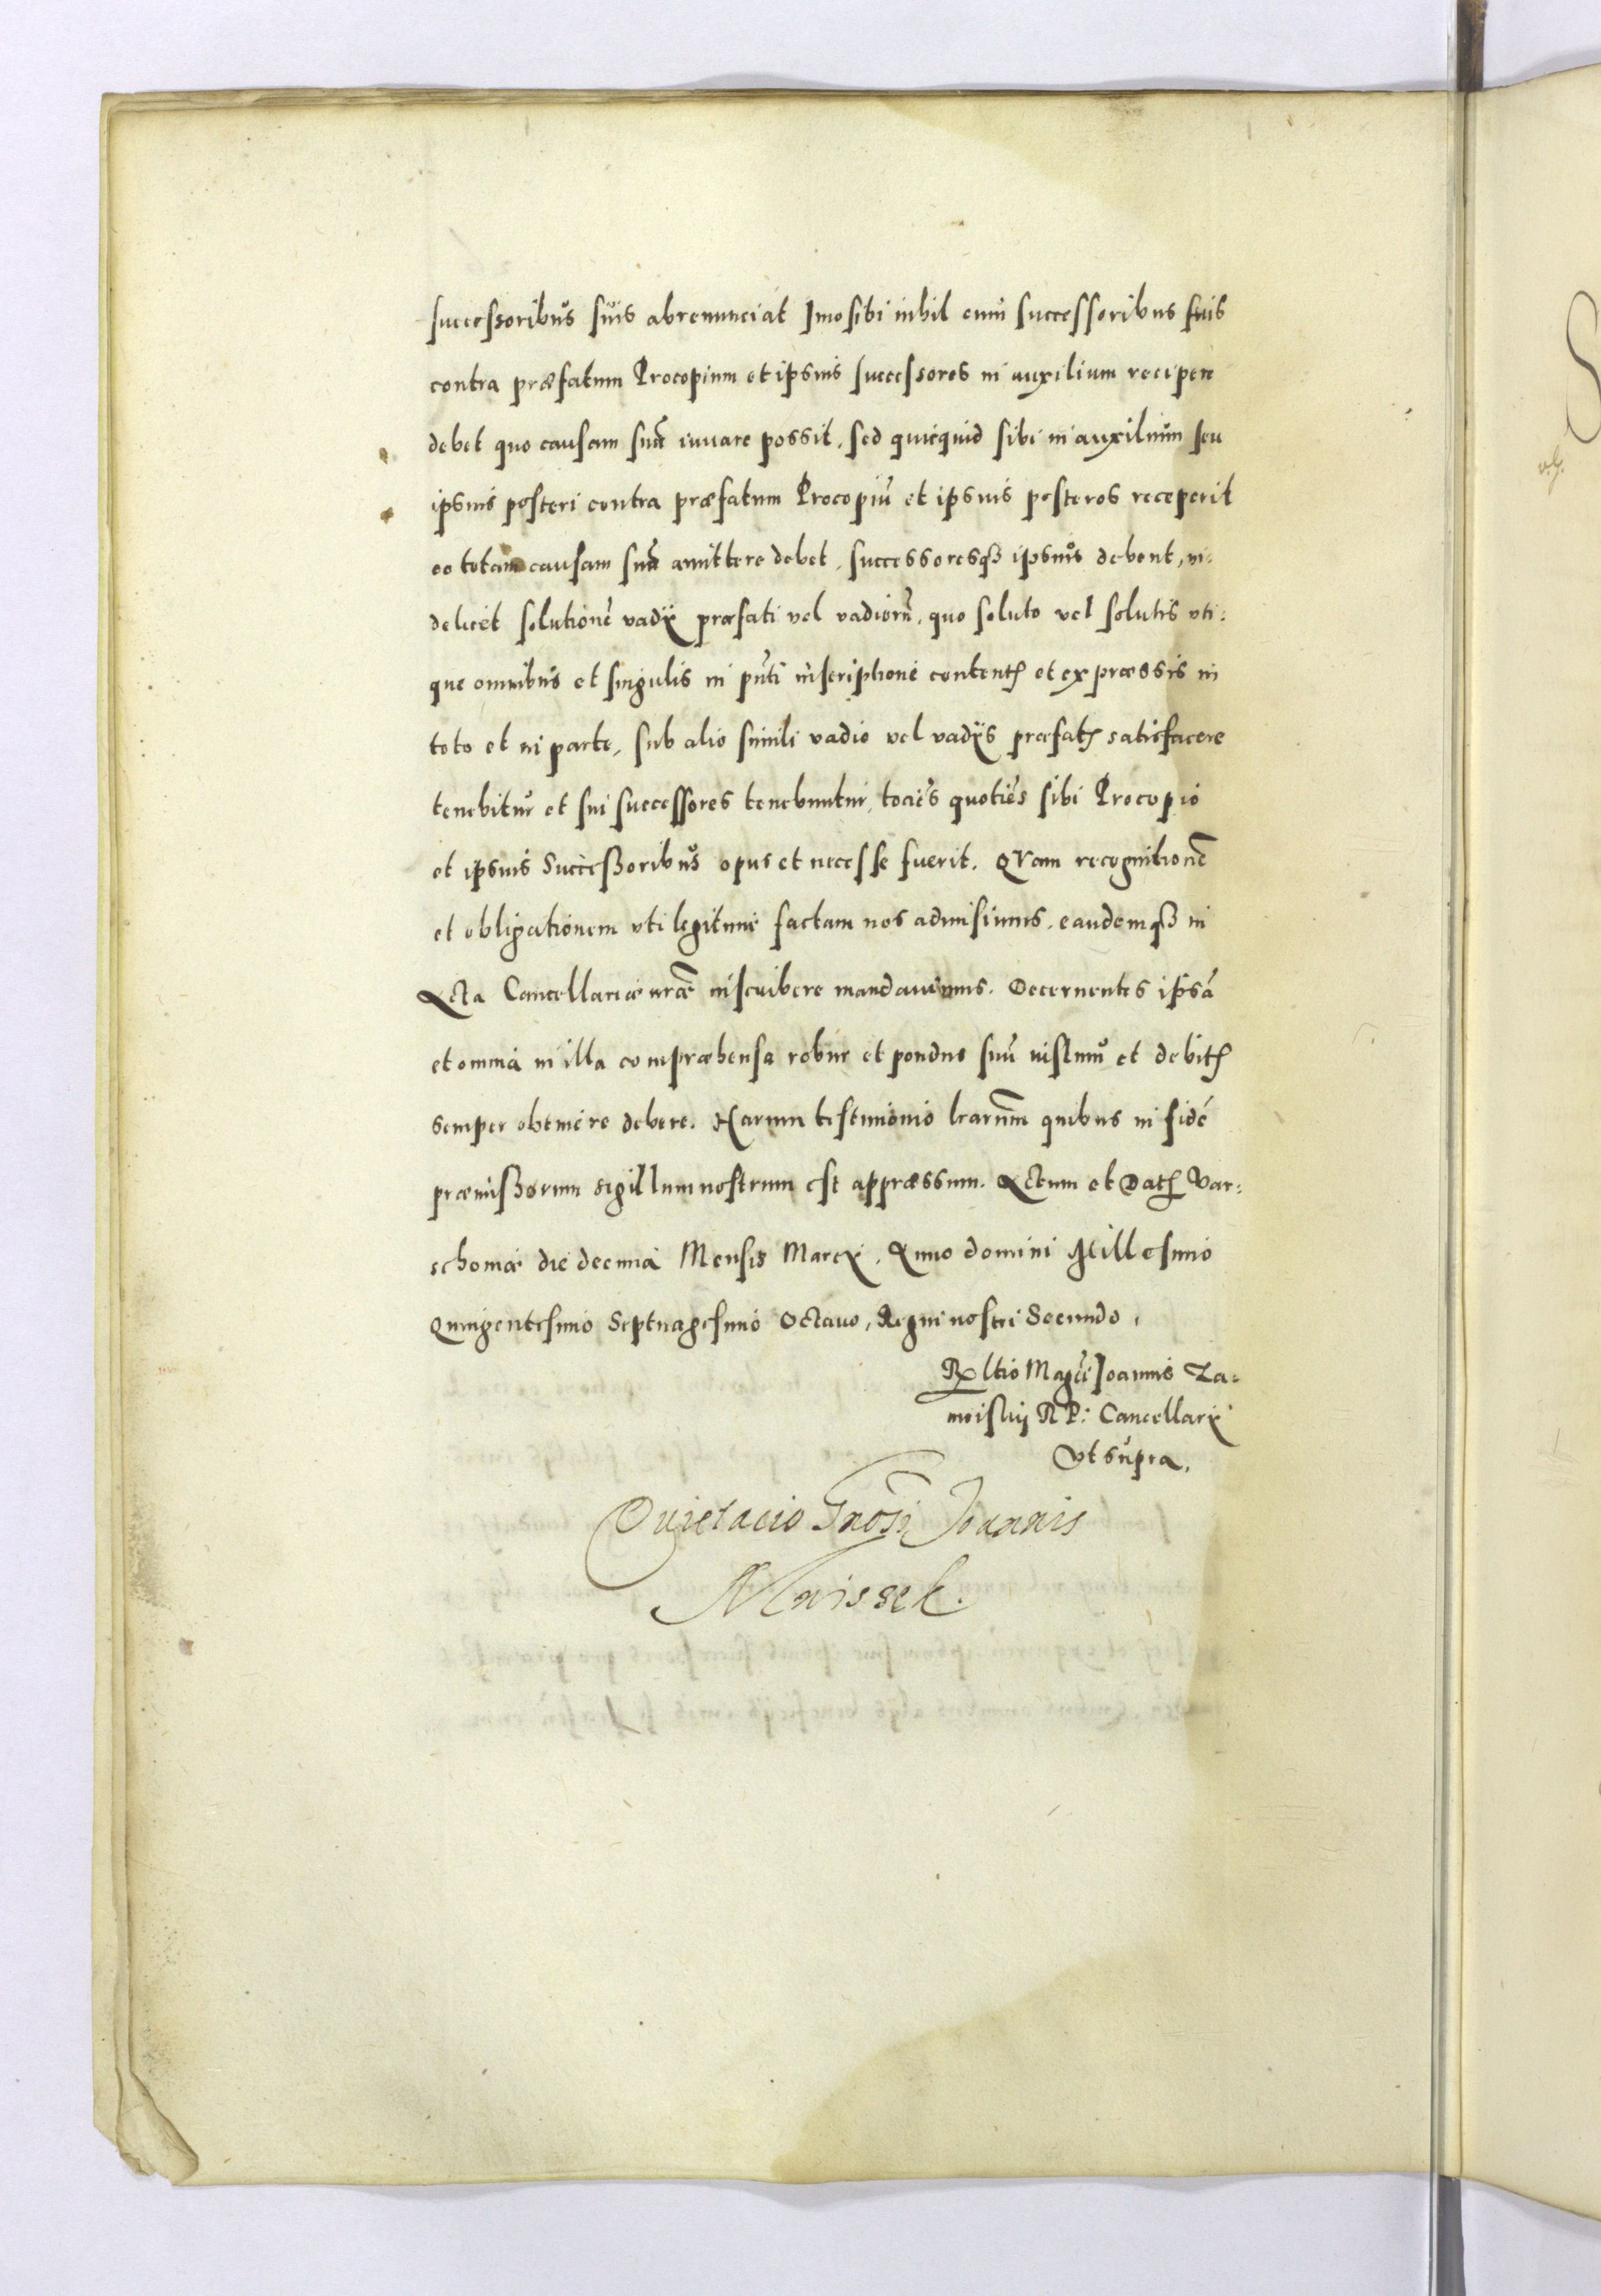 successoribus suis abrenunciat Imo sibi nihil cum successoribus suis
contra præfatum Procopium et ipsius successores in auxilium recipere
debet quo causam suã iuuare possit, sed quicquid sibi in auxilium seu
ipsius posteri contra præfatum Procopiũ et ipsius posteros receperit
eo totam causam suã amittere debet, successoresqȝ ipsius debent, vi-
delicet solutionẽ vadij præfati vel vadiorũ, quo soluto vel solutis vti-
que omnibus et singulis in pñti inscriptione contentꝭ et expræssis in
toto et in parte, sub alio simili vadio vel vadijs præfatꝭ satisfacere
tenebitur et sui successores tenebuntur, tociẽs quotiẽs sibi Procopio
et ipsius Successoribus opus et necesse fuerit. QVam recognitionẽ
et obligationem vti legitime factam nos admisimus, eandemqȝ in
Acta Cancellariæ nr̃æ inscribere mandauimus. Decernentes ipsã
et omnia in illa compræhensa robur et pondus suũ iustum et debitꝭ
semper obtinere debere. Harum testimonio lr̃arum quibus in fidẽ
præmissorum sigillum nostrum est appræssum. Actum et Datꝭ Var-
schouiæ die decima Mensis Marcij. Anno domini Millesimo
Quingentesimo Septuagesimo Octauo, Regni nostri Secundo.
Rꝑltio Mag̃ci Joannis Za-
moiskij R P: Cancellarij
Vt supra.
Quietacio Gnosi Joannis